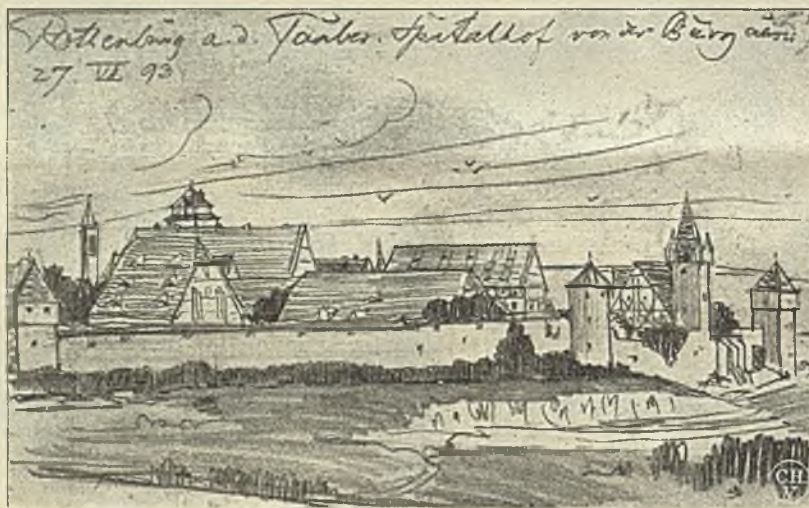 Rothenburg a. d. Tauber. Spitalhof von der Burg aus.
27. VI 93
CH.
V.